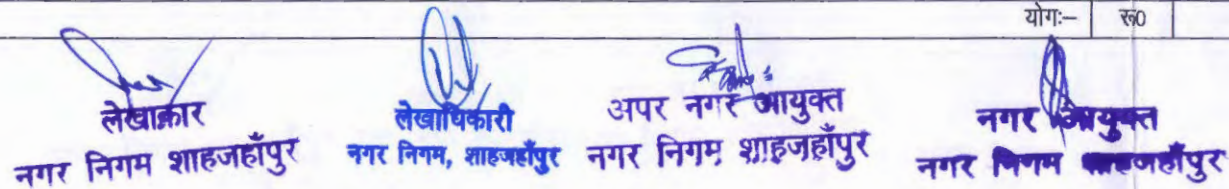 योगः– रू0
लेखाकार
नगर निगम शाहजहाँपुर
लेखाधिकारी
नगर निगम, शाहजहाँपुर
अपर नगर आयुक्त
नगर निगम शाहजहाँपुर
नगर आयुक्त
नगर निगम शाहजहाँपुर